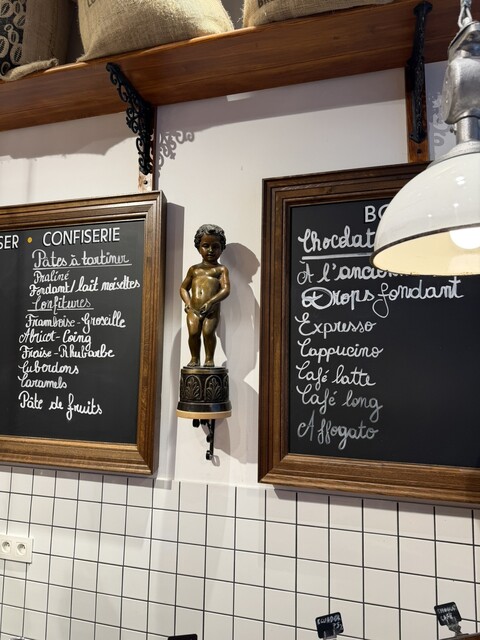 SER • CONFISERIE
Pâtes à tartiner
Praliné
Fondant/lait noisettes
Confitures
Framboise-Groseille
Abricot-Coing
Fraise-Rhubarbe
Cuberdons
Caramels
Pâte de fruits
BO
Chocolat
A l'ancien
Drops fondant
Expresso
Cappucino
Café latte
Café long
Affogato